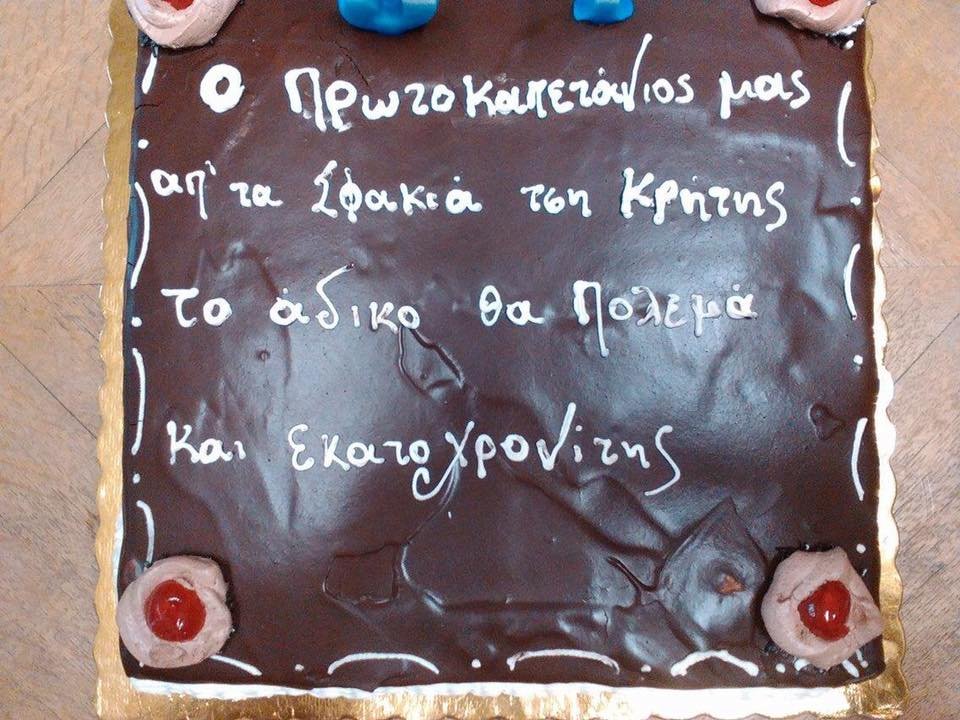 Ο Πρωτοκαπετάνιος μας
απ' τα Σφακιά τση Κρήτης
το άδικο θα Πολεμά
και εκατοχρονίτης